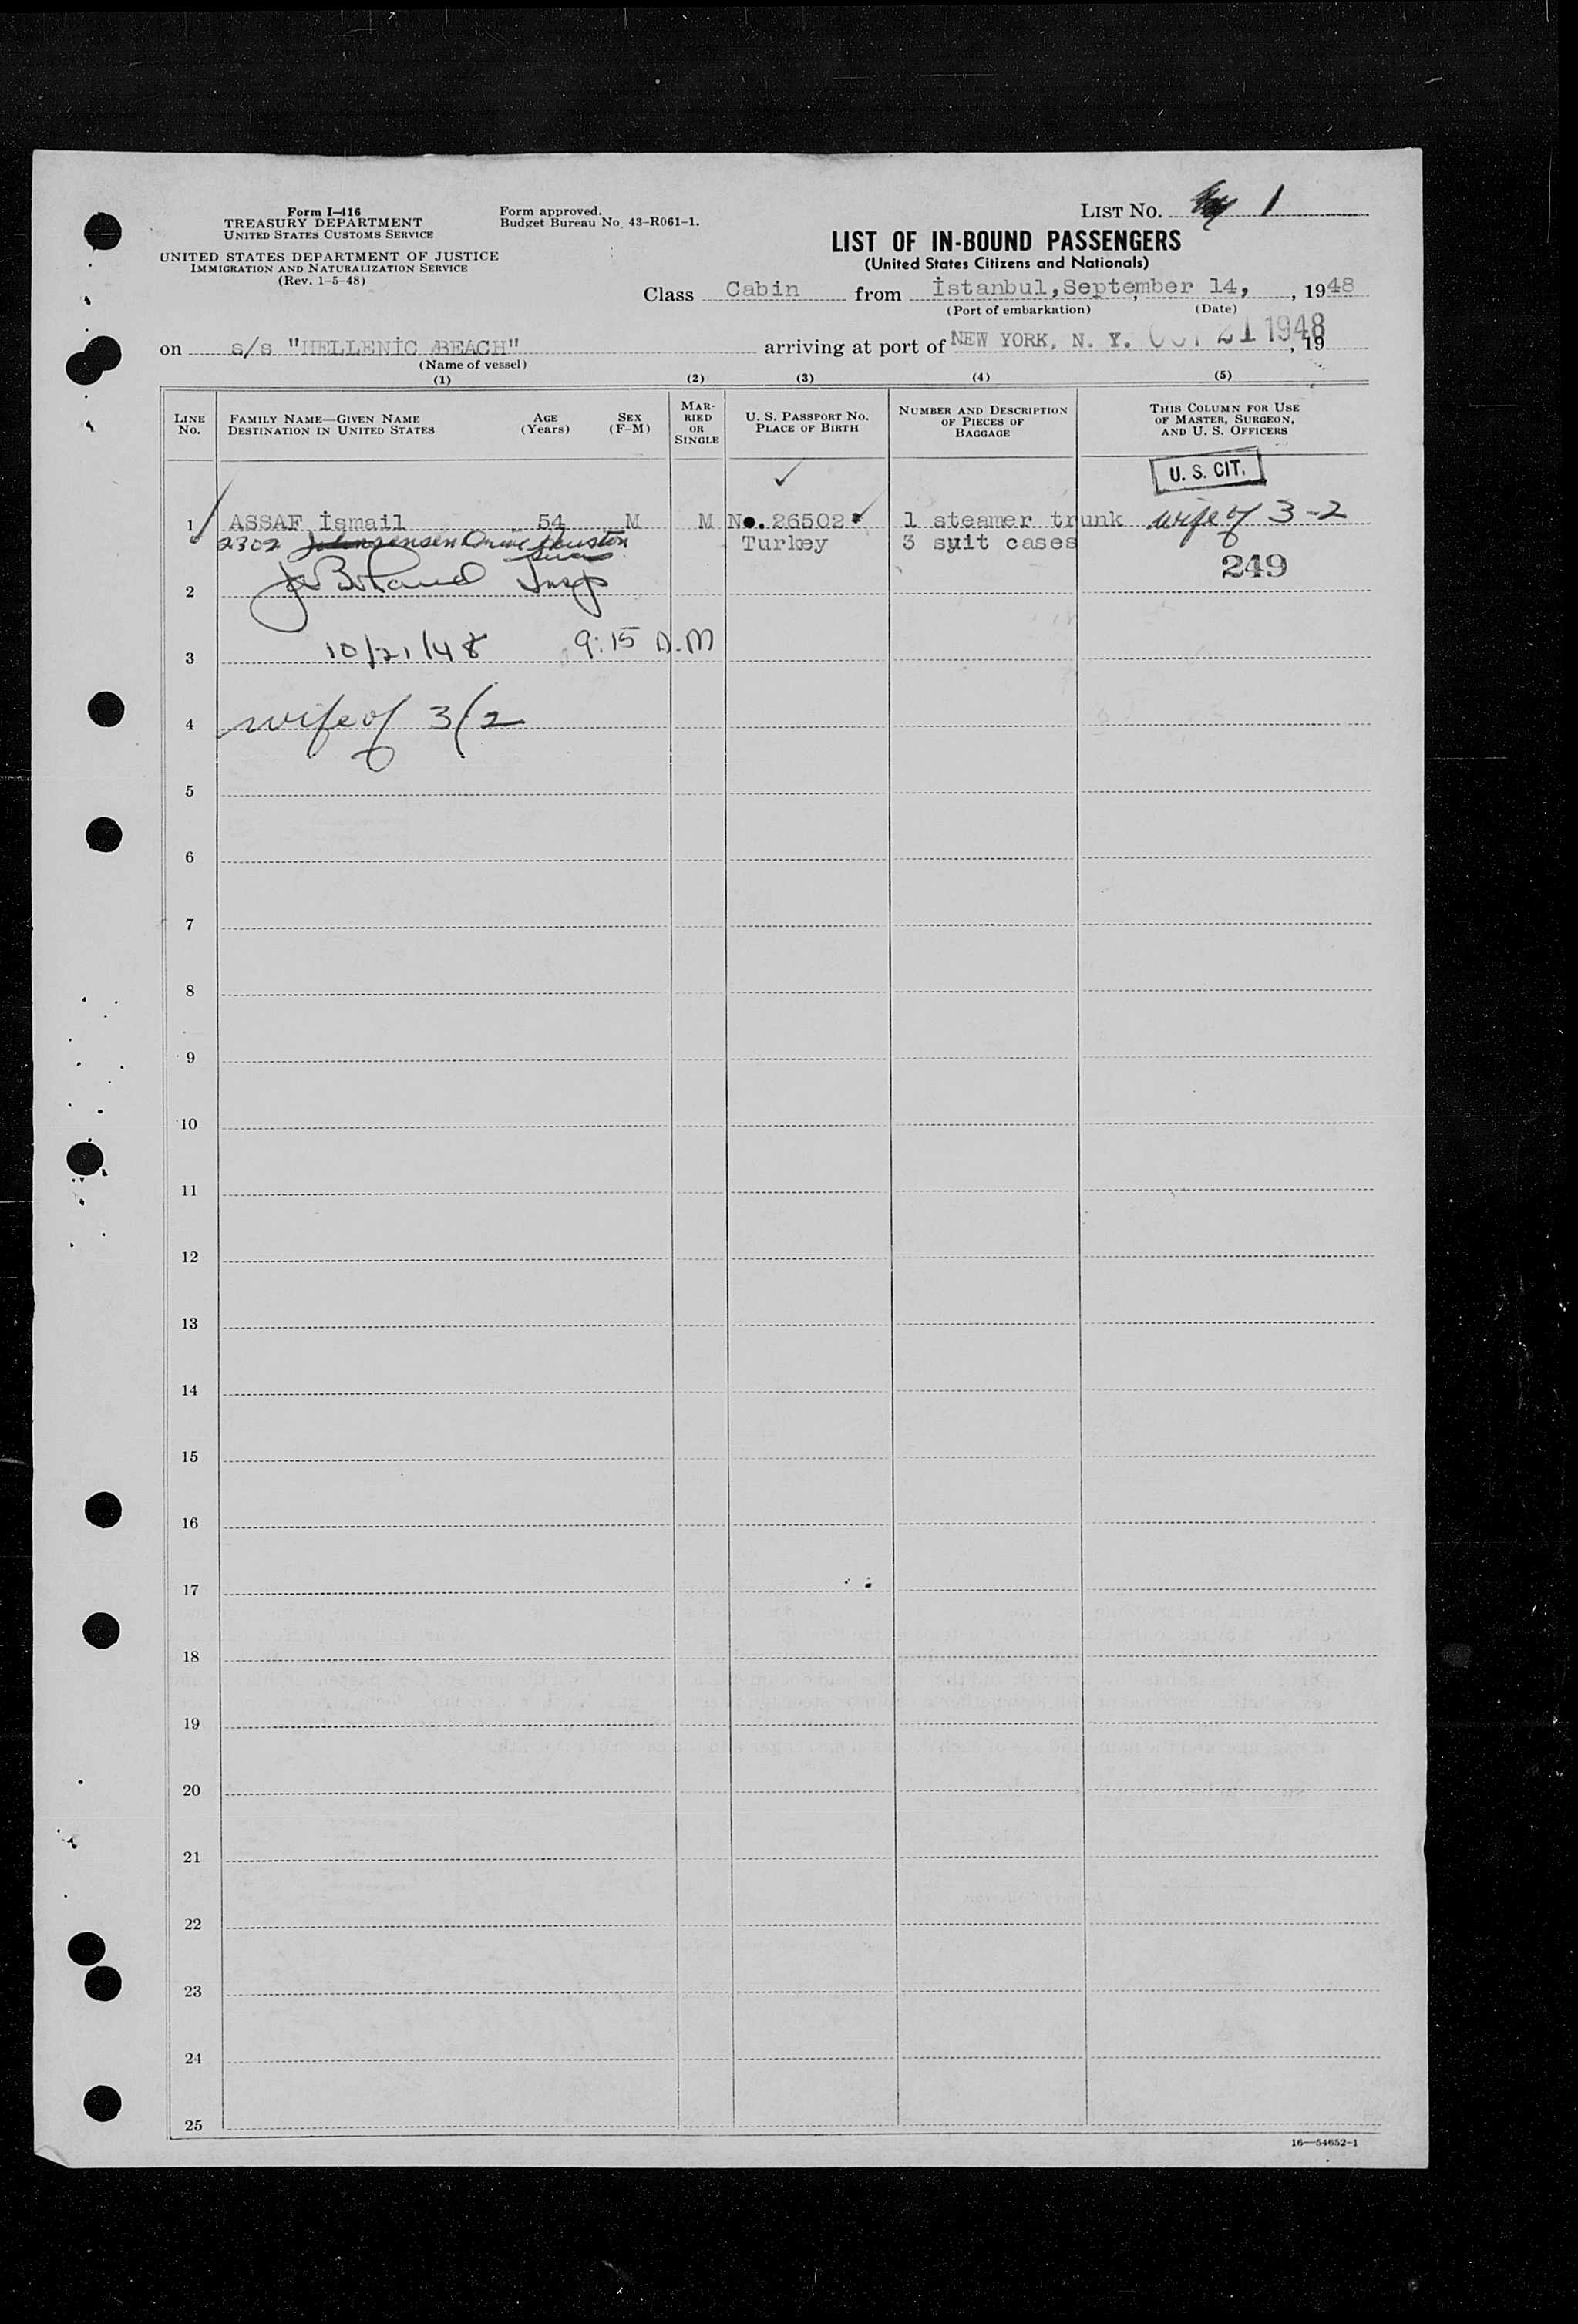 Form I-416
TREASURY DEPARTMENT
UNITED STATES CUSTOMS SERVICE
UNITED STATES DEPARTMENT OF JUSTICE
IMMIGRATION AND NATURALIZATION SERVICE
(Rev. 1-5-48)
Form approved.
Budget Bureau No. 43-R061-1.
LIST NO. 1
LIST OF IN-BOUND PASSENGERS
(United States Citizens and Nationals)
Class Cabin from İstanbul, September 14, , 1948
(Port of embarkation) (Date)
on s/s "HELLENİC BEACH" arriving at port of NEW YORK, N. Y. OCT 21 1948, 19
(Name of vessel)
(1) (2) (3) (4) (5)
LINE No. FAMILY NAME—GIVEN NAME DESTINATION IN UNITED STATES AGE (Years) SEX (F-M) MARRIED OR SINGLE U. S. PASSPORT NO. PLACE OF BIRTH NUMBER AND DESCRIPTION OF PIECES OF BAGGAGE THIS COLUMN FOR USE OF MASTER, SURGEON, AND U. S. OFFICERS
U. S. CIT.
1 ASSAF İsmail 54 M M No. 26502 1 steamer trunk wife of 3-2
2302 Drive Houston Turkey 3 suit cases
249
2 Insp
3 10/21/48 9:15 A.M
4 wife of 3/2
5
6
7
8
9
10
11
12
13
14
15
16
17
18
19
20
21
22
23
24
25
16—54652-1